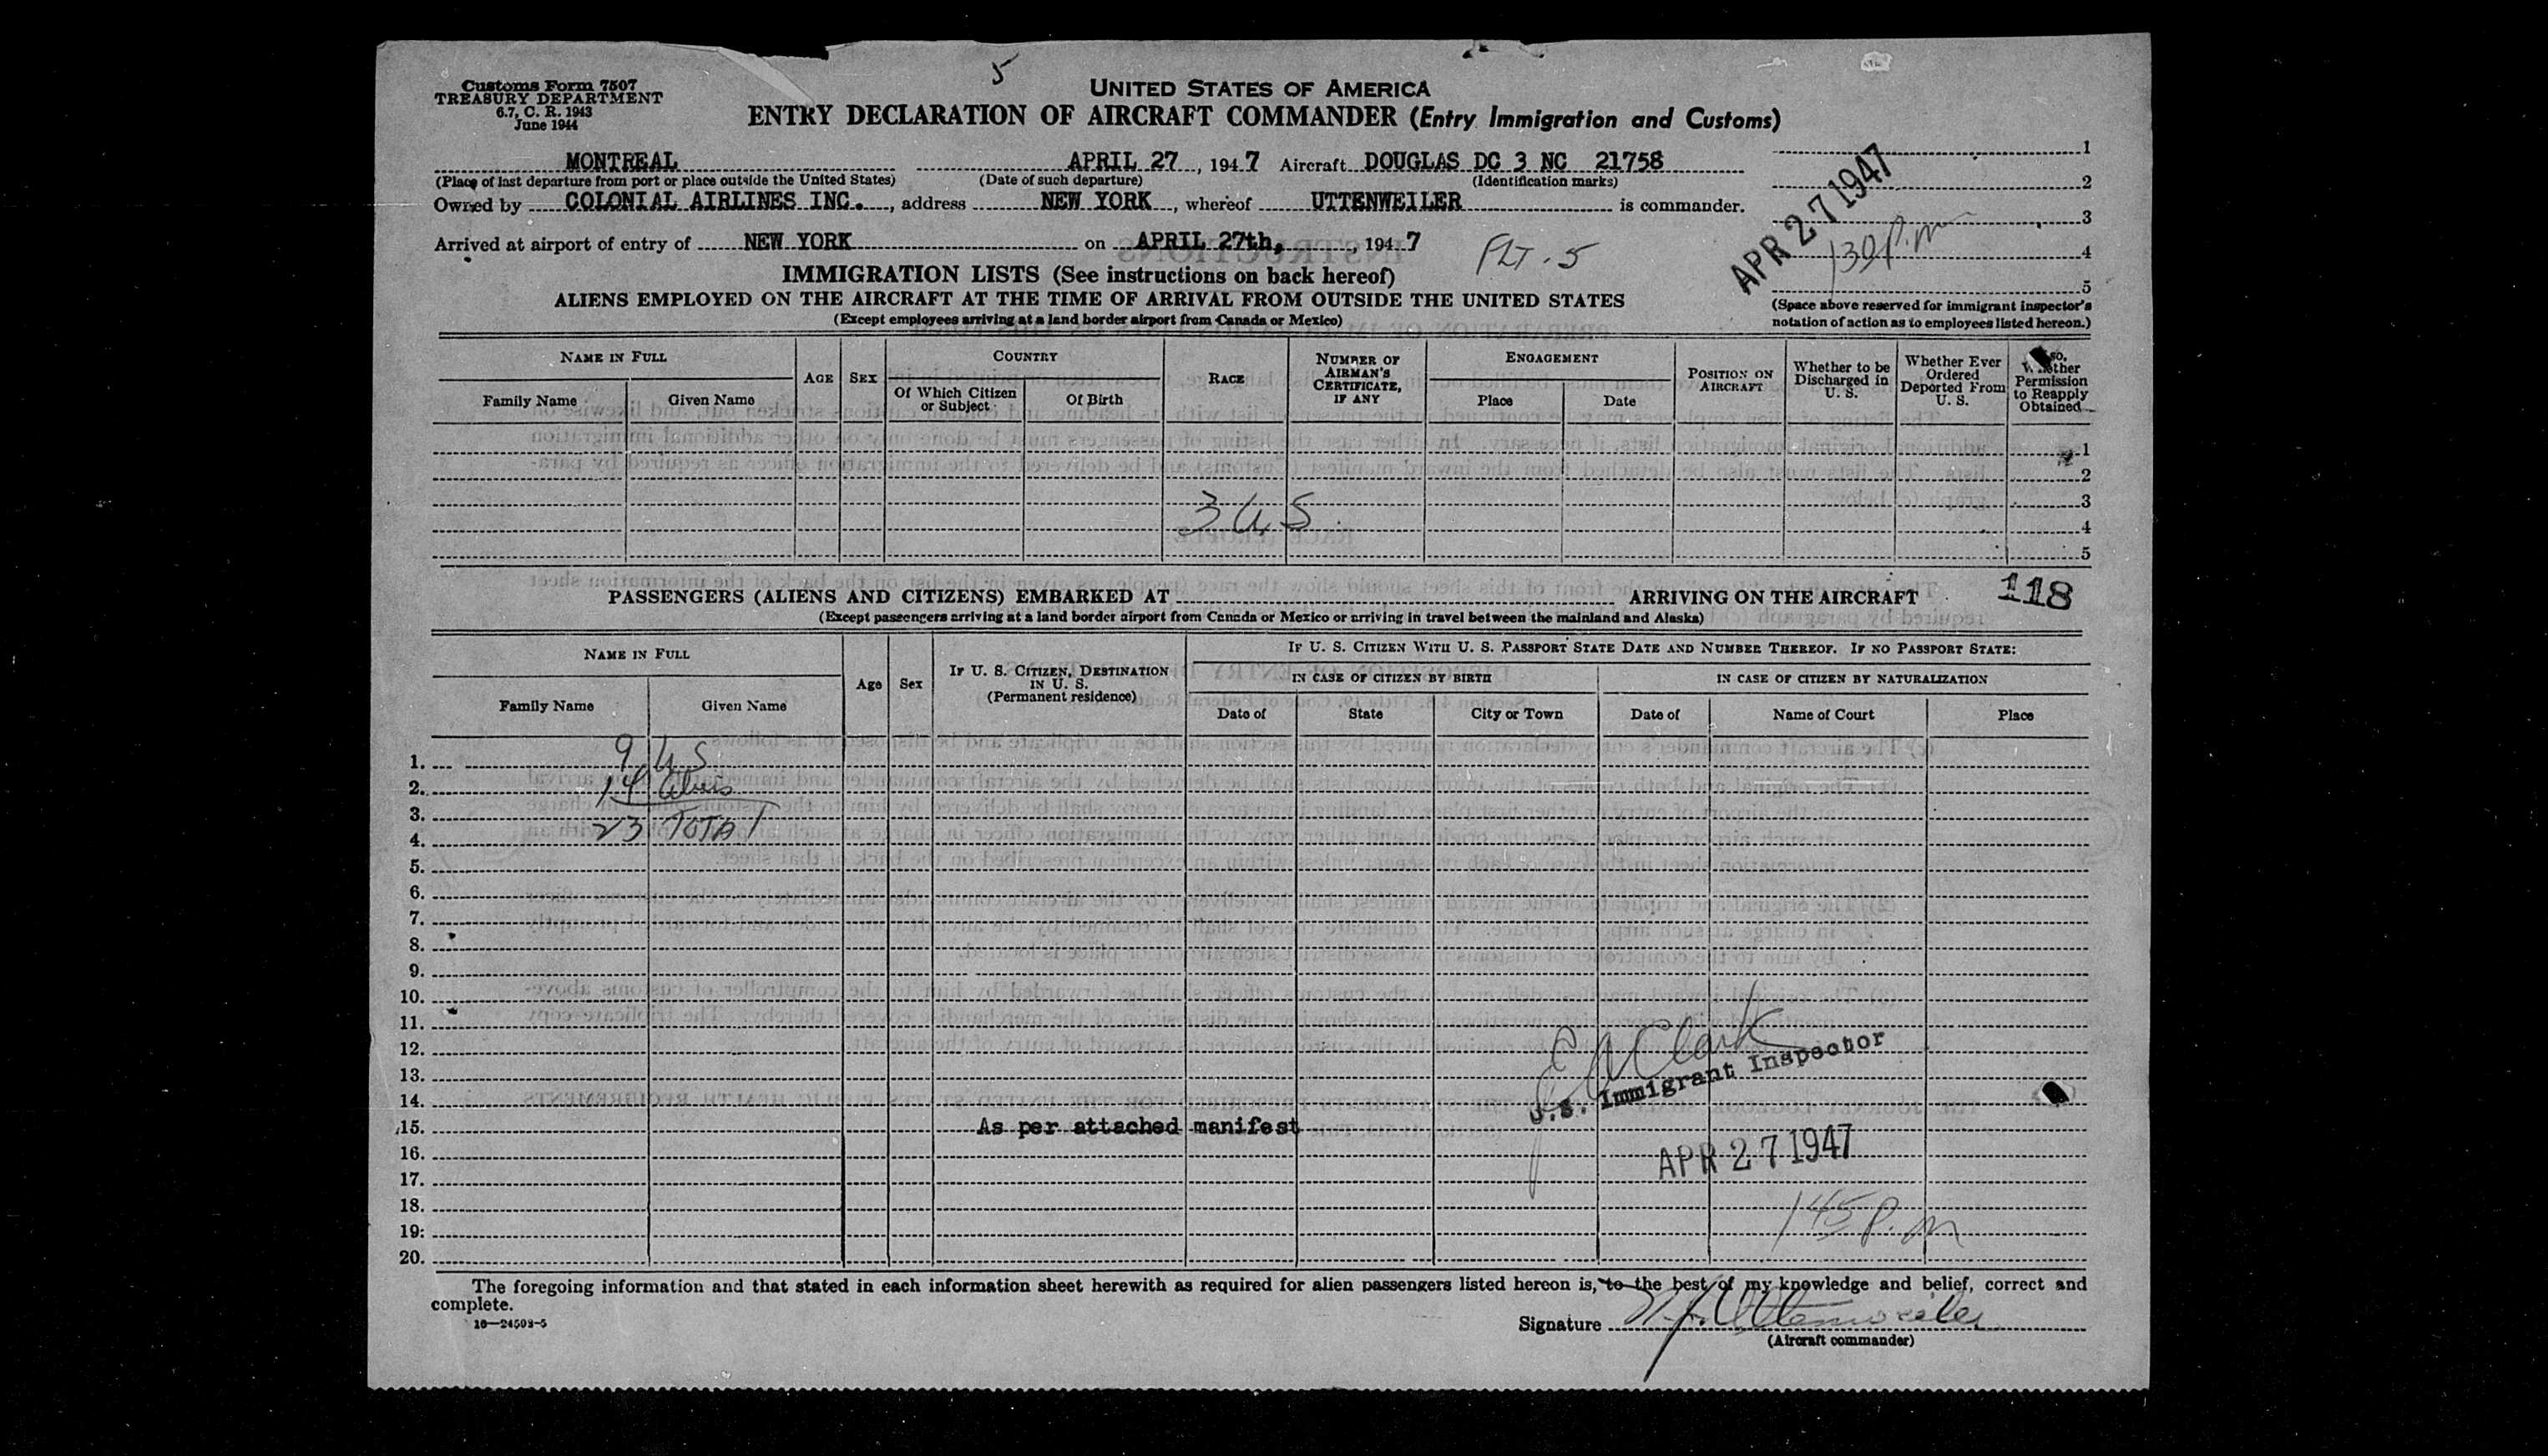 5
Customs Form 7507
TREASURY DEPARTMENT
6.7, C. R. 1943
June 1944
UNITED STATES OF AMERICA
ENTRY DECLARATION OF AIRCRAFT COMMANDER (Entry Immigration and Customs)
MONTREAL APRIL 27, 1947 Aircraft DOUGLAS DC 3 NC 21758
(Place of last departure from port or place outside the United States) (Date of such departure) (Identification marks)
Owned by COLONIAL AIRLINES INC., address NEW YORK, whereof UTTENWEILER is commander.
Arrived at airport of entry of NEW YORK on APRIL 27th, 1947
FLT. 5
1
2
3
4
5
APR 27 1947
130 p.m
(Space above reserved for immigrant inspector's
notation of action as to employees listed hereon.)
IMMIGRATION LISTS (See instructions on back hereof)
ALIENS EMPLOYED ON THE AIRCRAFT AT THE TIME OF ARRIVAL FROM OUTSIDE THE UNITED STATES
(Except employees arriving at a land border airport from Canada or Mexico)
NAME IN FULL
Family Name
Given Name
AGE
SEX
COUNTRY
Of Which Citizen
or Subject
Of Birth
RACE
NUMBER OF
AIRMAN'S
CERTIFICATE,
IF ANY
ENGAGEMENT
Place
Date
POSITION ON
AIRCRAFT
Whether to be
Discharged in
U. S.
Whether Ever
Ordered
Deported From
U. S.
Permission
to Reapply
Obtained
1
2
3
4
5
3 U S
118
PASSENGERS (ALIENS AND CITIZENS) EMBARKED AT ARRIVING ON THE AIRCRAFT
(Except passengers arriving at a land border airport from Canada or Mexico or arriving in travel between the mainland and Alaska)
NAME IN FULL
Family Name
Given Name
Age
Sex
IF U. S. CITIZEN, DESTINATION
IN U. S.
(Permanent residence)
IF U. S. CITIZEN WITH U. S. PASSPORT STATE DATE AND NUMBER THEREOF. IF NO PASSPORT STATE:
IN CASE OF CITIZEN BY BIRTH
IN CASE OF CITIZEN BY NATURALIZATION
Date of
State
City or Town
Date of
Name of Court
Place
1. 9 U S
2. 14
3.
4. 23 TOTAL
5.
6.
7.
8.
9.
10.
11.
12.
13.
14.
15. As per attached manifest
16.
17.
18.
19.
20.
Clark
U.S. Immigrant Inspector
APR 27 1947
145 P.m
The foregoing information and that stated in each information sheet herewith as required for alien passengers listed hereon is, to the best of my knowledge and belief, correct and
complete.
Signature Uttenweiler
(Aircraft commander)